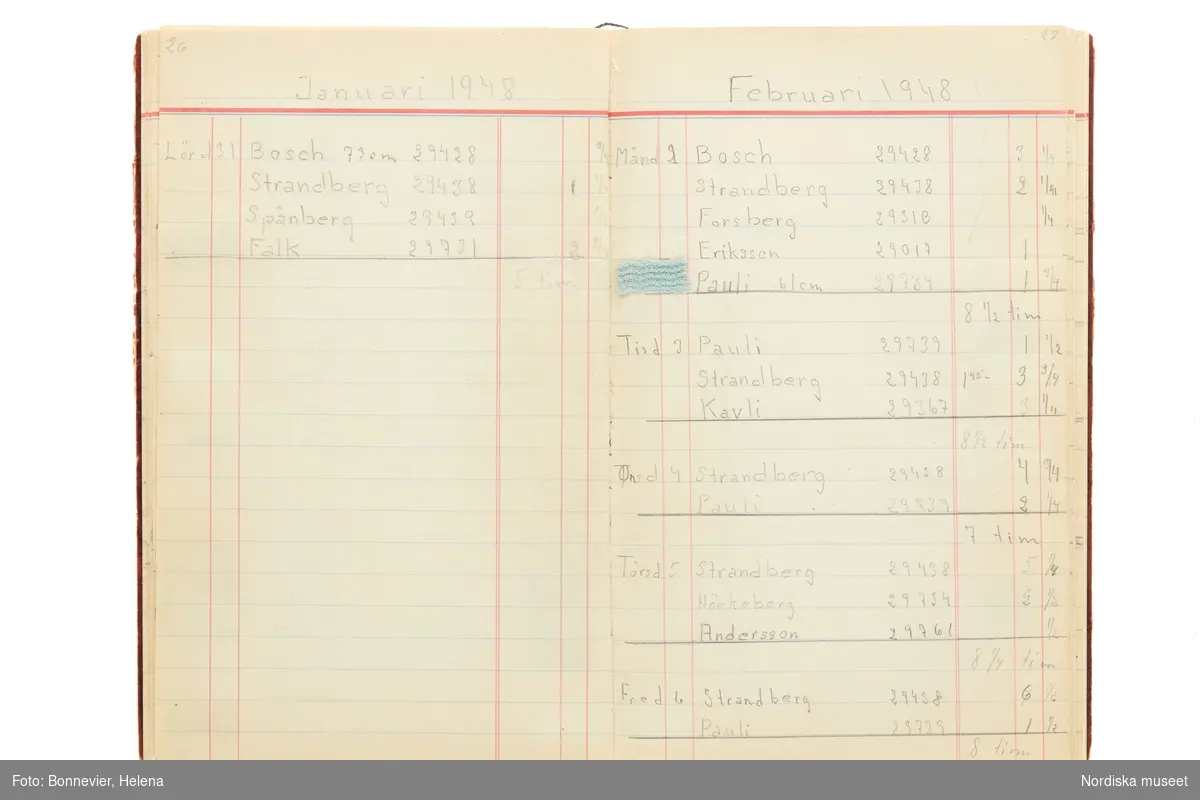 26
Januari 1948
Lörd 31 Bosch 73cm 29428
Strandberg 29438 1
Spånberg 29439
Falk 29731 3
5 tim
27
Februari 1948
Månd 2 Bosch 29428 3 1/4
Strandberg 29438 2 1/4
Forsberg 29310 1/4
Eriksson 29017 1
Pauli 61cm 29739 1 3/4
8 1/2 tim
Tisd 3 Pauli 29739 1 1/2
Strandberg 29438 3 3/4
Kavli 29367 3 1/4
8 1/2 tim
Onsd 4 Strandberg 29438 4 3/4
Pauli 29739 2 1/4
7 tim
Torsd 5 Strandberg 29438 5
Höckeberg 29734 2 1/2
Andersson 29761 1/2
8 1/4 tim
Fred 6 Strandberg 29438 6 1/2
Pauli 29739 1 1/2
8 tim
Foto: Bonnevier, Helena
Nordiska museet